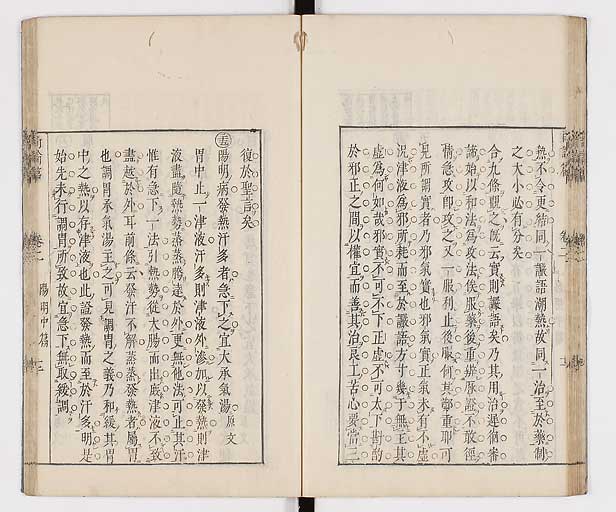 熱不令更結同一讝語潮熱故同一治至於藥制
之大小必有分矣
合九條觀之既云實則讝語矣乃其用治遲徊審
諦始以和法爲攻法俟服藥後重辨脈證不敢徑
情急攻即攻之又一服利止後服何其鄭重耶可
見所謂實者乃邪氣實也邪氣實正氣未有不虛
況津液爲邪所耗而至於讝語方寸幾于無主其
虛爲何如哉邪實不可不下正虛不可太下斟酌
於邪正之間以權宜而善其治良工苦心要當三
復於聖言矣
陽明病發熱汗多者急下之宜大承氣湯原文
胃中止一津液汗多則津液外滲加以發熱則津
液盡隨熱勢蒸蒸騰達於外更無他法可止其汗
惟有急下一法引熱勢從大腸而出庶津液不致
盡越於外耳前條云發汗不解蒸蒸發熱者屬胃
也調胃承氣湯主之可見調胃之義乃和緩其胃
中之熱以存津液也此證發熱而至於汗多明是
始先未行調胃所致故宜急下無取緩調
卷二 陽明中篇 三